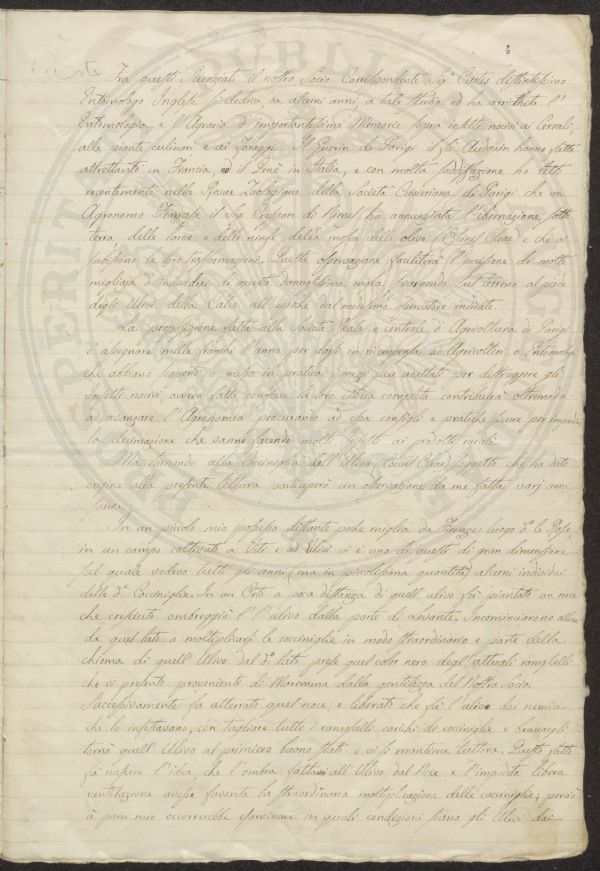 4
Fra questi Scienziati il nostro Socio Corrispondente Sig.r Curtis distintissimo
Entomologo Inglese si dedica, da alcuni anni, a tale studio ed ha arricchita l'
Entomologia, e l'Agraria d'importantissime Memorie sopra insetti nocivi ai Cereali,
alle piante culinari e ai foraggi. Il Guerin di Parigi il fù Audouin hanno fatto
altrettanto in Francia, ed il Gené in Italia, e con molta sodisfazione ho letto
recentemente nella Revue Zoologique della Società Cuvieriana di Parigi che un
Agronomo Francese il Sig.r Crespon di Nimes ha annunziata l'ibernazione, sotto
terra, delle larve e delle ninfe della mosca delle olive (Oleae) e che vi
subiscono le loro trasformazioni. Questa osservazione faciliterà l'uccisione di molte
migliaja d'individui di questa dannosissima mosca spargendo sul terreno al piede
degli Ulivi della Calce all'epoche dal medesimo Osservatore indicate.
La proposizione fatta alla Società Reale e centrale d'Agricoltura di Parigi
d'assegnare mille franchi l'anno per darsi in ricompensa ad Agricoltori o Entomologi
che abbiano scoperto o messo in pratica i mezzi più adattati per distruggere gli
insetti nocivi, ovvero fatta conoscere la loro istoria completa contribuirà oltremodo
ad avanzare l'Agronomia procurando ad essa consigli e pratiche sicure per impedire
la decimazione che vanno facendo molti insetti ai prodotti rurali.
Ma tornando alla Cocciniglia dell'Ulivo (Coccus Oleae) soggetto che ha dato
origine alla presente lettura parteciperò un'osservazione da me fatta varj anni
sono.
In un piccolo mio possesso distante poche miglia da Firenze luogo d.o le Rose,
in un campo coltivato a Viti e ad Ulivi vi è uno di questi di gran dimensione
sul quale vedevo tutti gli anni (ma in piccolissima quantità) alcuni individui
delle d.e Cocciniglie. In un Orto a poca distanza di quell'ulivo fu piantato un noce
che cresciuto ombreggiò l'ulivo dalla parte di Levante. Incominciarono allora
da quel lato a moltiplicarsi le cocciniglie in modo straordinario e parte della
chioma di quell'Ulivo dal d.o lato prese quel color nero degl'attuali ramoscelli
che vi presento provenienti di Maremma dalla gentilezza del Nostro Socio.
Successivamente fu atterrato quel noce, e liberato che fu l'ulivo dai nemici
che lo infestavano, con tagliare tutti i ramoscelli carichi di cocciniglie e bruciargli
tornò quell'Ulivo al primiero buono stato e vi si mantiene tuttora. Questo fatto
fà nascere l'idea, che l'ombra fattavi all'Ulivo dal Noce e l'impedita libera
ventilazione avesse favorita la straordinaria moltiplicazione delle cocciniglie; perciò
a parer mio occorrerebbe esaminare in quali condizioni siano gli Ulivi dai